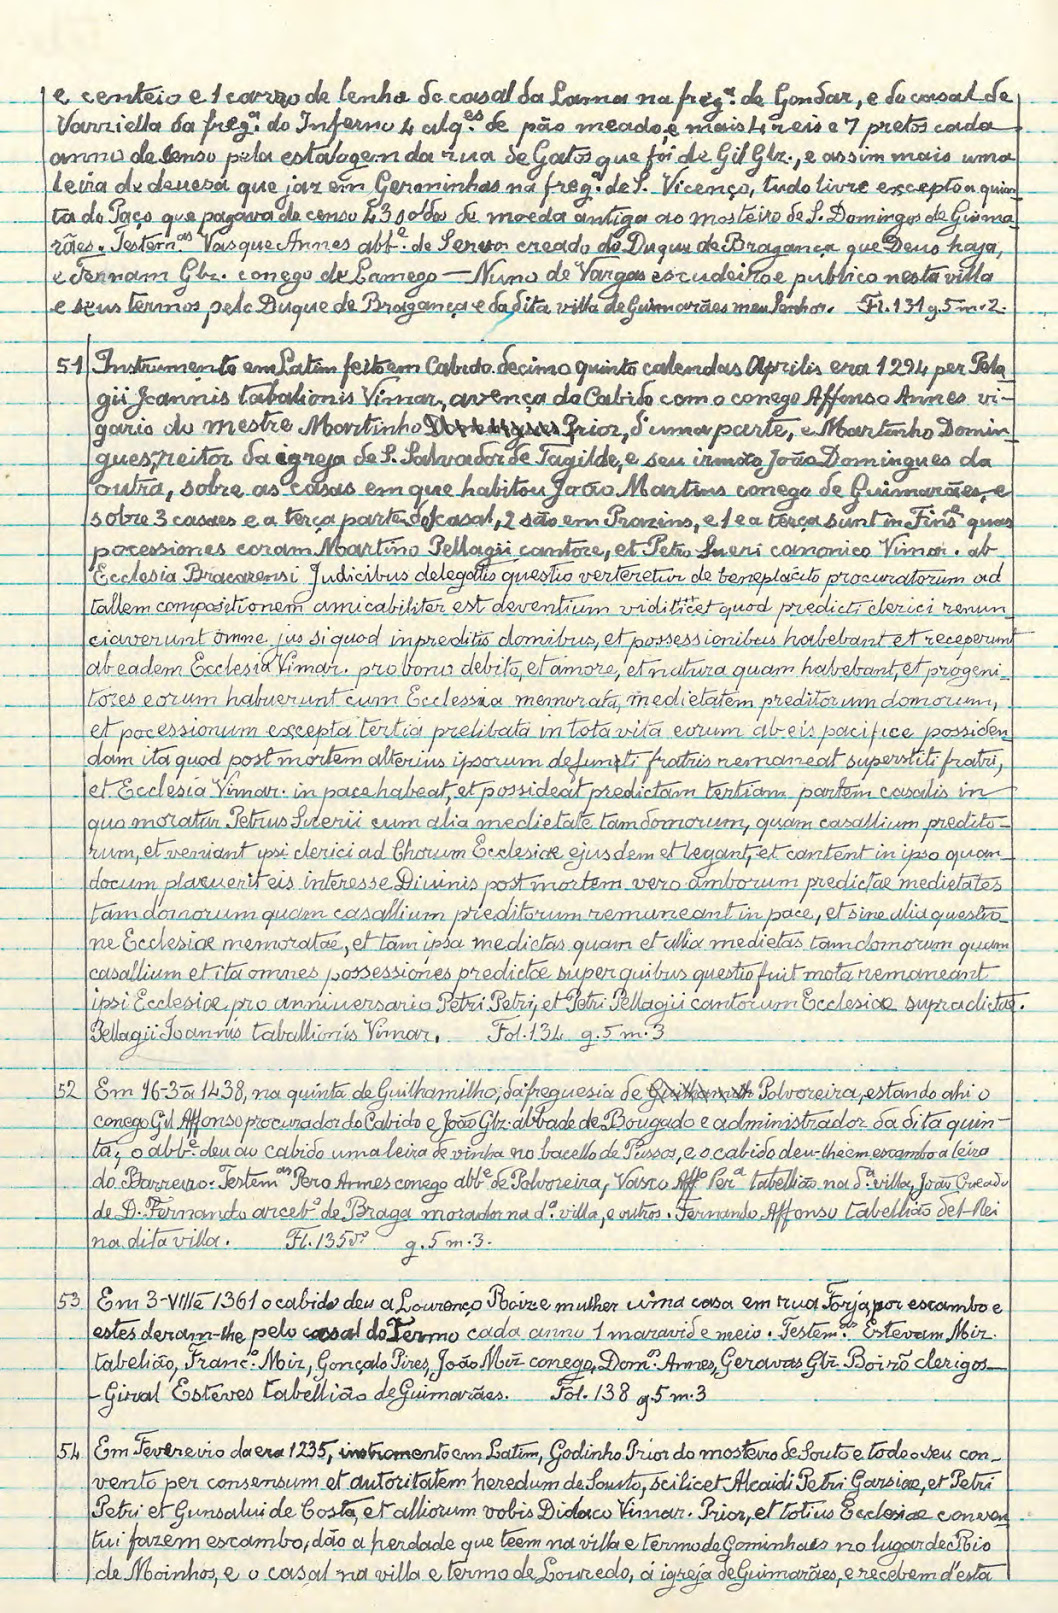 e centeio e 1 carro de lenha do casal da Lama na freg.ª de Gondar, e do casal de
Varziella da freg.ª do Inferno 4 alq.es de pão meado, e mais 4 reis e 7 pretos cada
anno de censo pela estalagem da rua de Gatos que foi de Gil Glz., e assim mais uma
leira de devesa que jaz em Geroninhas na freg.ª de S. Vicenço, tudo livre excepto a quin
ta do Paço que pagava de censo 43 soldos de moeda antiga ao mosteiro de S. Domingos de Guima
rães. Testem.as Vasque Annes abb.e de creado do Duque de Bragança que Deus haja,
e Fernam Glz. conego de Lamego — Nuno de Vargas escudeiro e publico nesta villa
e seus termos pelo Duque de Bragança e da dita villa de Guimarães meu Senhor. Fl. 131 g. 5 m. 2.
51 Instrumento em Latim feito em Cabido decimo quinto calendas Aprilis era 1294 per Pela
gii Joannis tabalionis Vimar., avença do Cabido com o conego Affonso Annes vi-
gario do mestre Martinho Prior, d'uma parte, e Martinho Domin
gues, reitor da egreja de S. Salvador de Tagilde, e seu irmão João Domingues da
outra, sobre as casas em que habitou João Martins conego de Guimarães, e
sobre 3 casaes e a terça parte do casal, 2 são em Prazins, e 1 e a terça sunt in Fins quas
pocessiones coram Martino Pellagii cantore, et Petro Sueri canonico Vimar. ab
Ecclesia Bracarensi Judicibus delegatis questio verteretur de beneplacito procuratorum ad
tallem compositionem amicabiliter est deventium vidilicet quod predicti clerici renun
ciaverunt omne jus si quod in preditis domibus, et possessionibus habebant et receperunt
ab eadem Ecclesia Vimar. pro bono debito, et amore, et natura quam habebant, et progeni-
tores eorum habuerunt cum Ecclessia memorata, medietatem preditorum domorum,
et pocessionum excepta tertia prelibata in tota vita eorum ab eis pacifice possiden
dam ita quod post mortem alterius ipsorum defuncti fratris remaneat superstiti fratri,
et Ecclesia Vimar. in pace habeat, et possideat predictam tertiam partem casalis in
quo moratur Petrus Suerii cum alia medietate tam domorum, quam casallium predito-
rum, et veniant ipsi clerici ad Chorum Ecclesiæ ejusdem et legant, et cantent in ipso quan
docum placuerit eis interesse Divinis post mortem vero amborum predictae medietates
tam domorum quam casallium preditorum remaneant in pace, et sine alia questio
ne Ecclesiæ memoratae, et tam ipsa medietas quam et allia medietas tam domorum quam
casallium et ita omnes possessiones predictæ super quibus questio fuit mota remaneant
ipsi Ecclesiæ pro anniversario Petri Petri, et Petri Pellagii cantorum Ecclesiæ supradictæ.
Pellagii Joannis taballionis Vimar. Fol. 134 g. 5 m. 3
52 Em 16-3º-1438, na quinta de Guilhamilho, da freguesia de Polvoreira, estando ahi o
conego Gil Affonso procurador do Cabido e João Glz. abbade de Bougado e administrador da dita quin-
ta, o abb.e deu ao cabido uma leira de vinha no bacello de Pussos, e o cabido deu-lhe em escambo a leira
do Barreiro. Testem.as Pero Annes conego abb.e de Polvoreira, Vasco Aff.º Per.ª tabellião na d.ª villa, João Creado
de D. Fernando arceb.º de Braga morador na d.ª villa, e outros. Fernando Affonso tabellião del-Rei
na dita villa. Fl. 135 vº g. 5 m. 3.
53 Em 3-VIII-1361 o cabido deu a Lourenço Roiz e mulher uma casa em rua Forja, por escambo e
estes deram-lhe pelo casal do Termo cada anno 1 maravidi e meio. Testem.as Estevam Miz.
tabelião, Franc.º Miz, Gonçalo Pires, João Miz conego, Dom.os Annes, Geravas Glz. Boirõ clerigos —
- Giral Esteves tabellião de Guimarães. Fol. 138 g. 5 m. 3
54 Em Fevereiro da era 1235, instromento em Latim, Godinho Prior do mosteiro de Souto e todo o seu con-
vento per consensum et autoritatem heredum de Souto, scilicet Alcaidi Petri Garsiæ, et Petri
Petri et Gunsalui de Costa, et alliorum vobis Didaco Vimar. Prior, et totius Ecclesiæ conven
tui fazem escambo, dão a herdade que teem na villa e termo de Gominhaes no lugar de Rio
de Moinhos, e o casal na villa e termo de Louredo, á igreja de Guimarães, e recebem d'esta